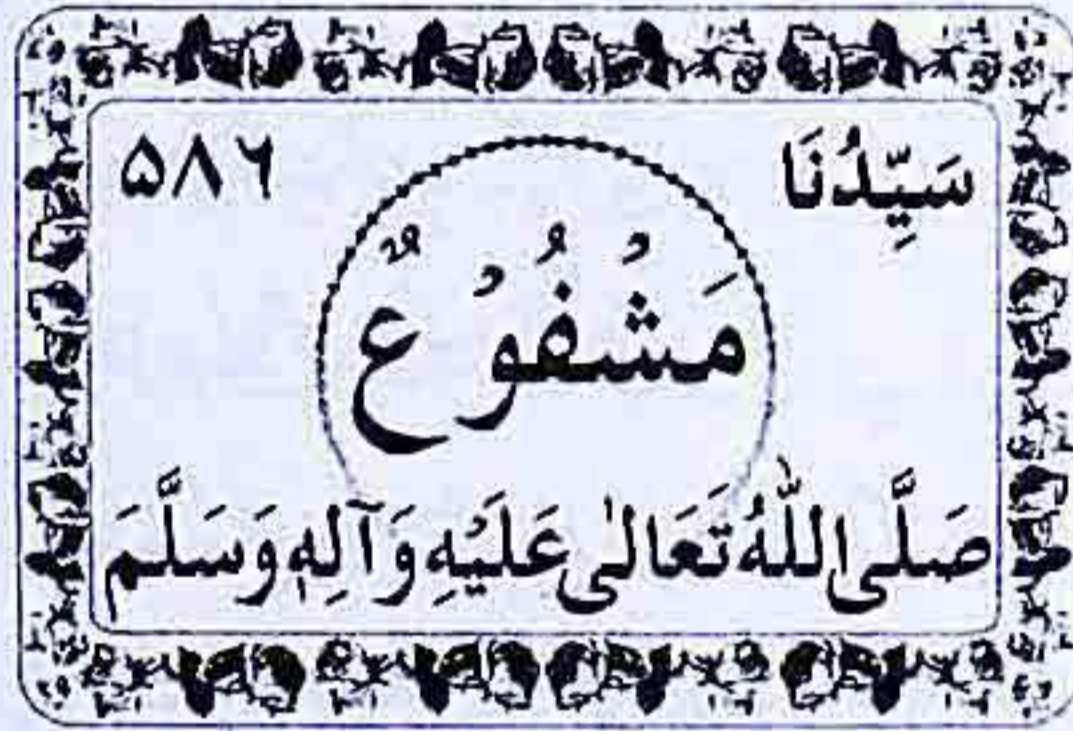 سَيِّدُنَا ۵۸۶
مَشْفُوْعٌ
صَلَّى اللّٰهُ تَعَالٰى عَلَيْهِ وَآلِهٖ وَسَلَّمَ